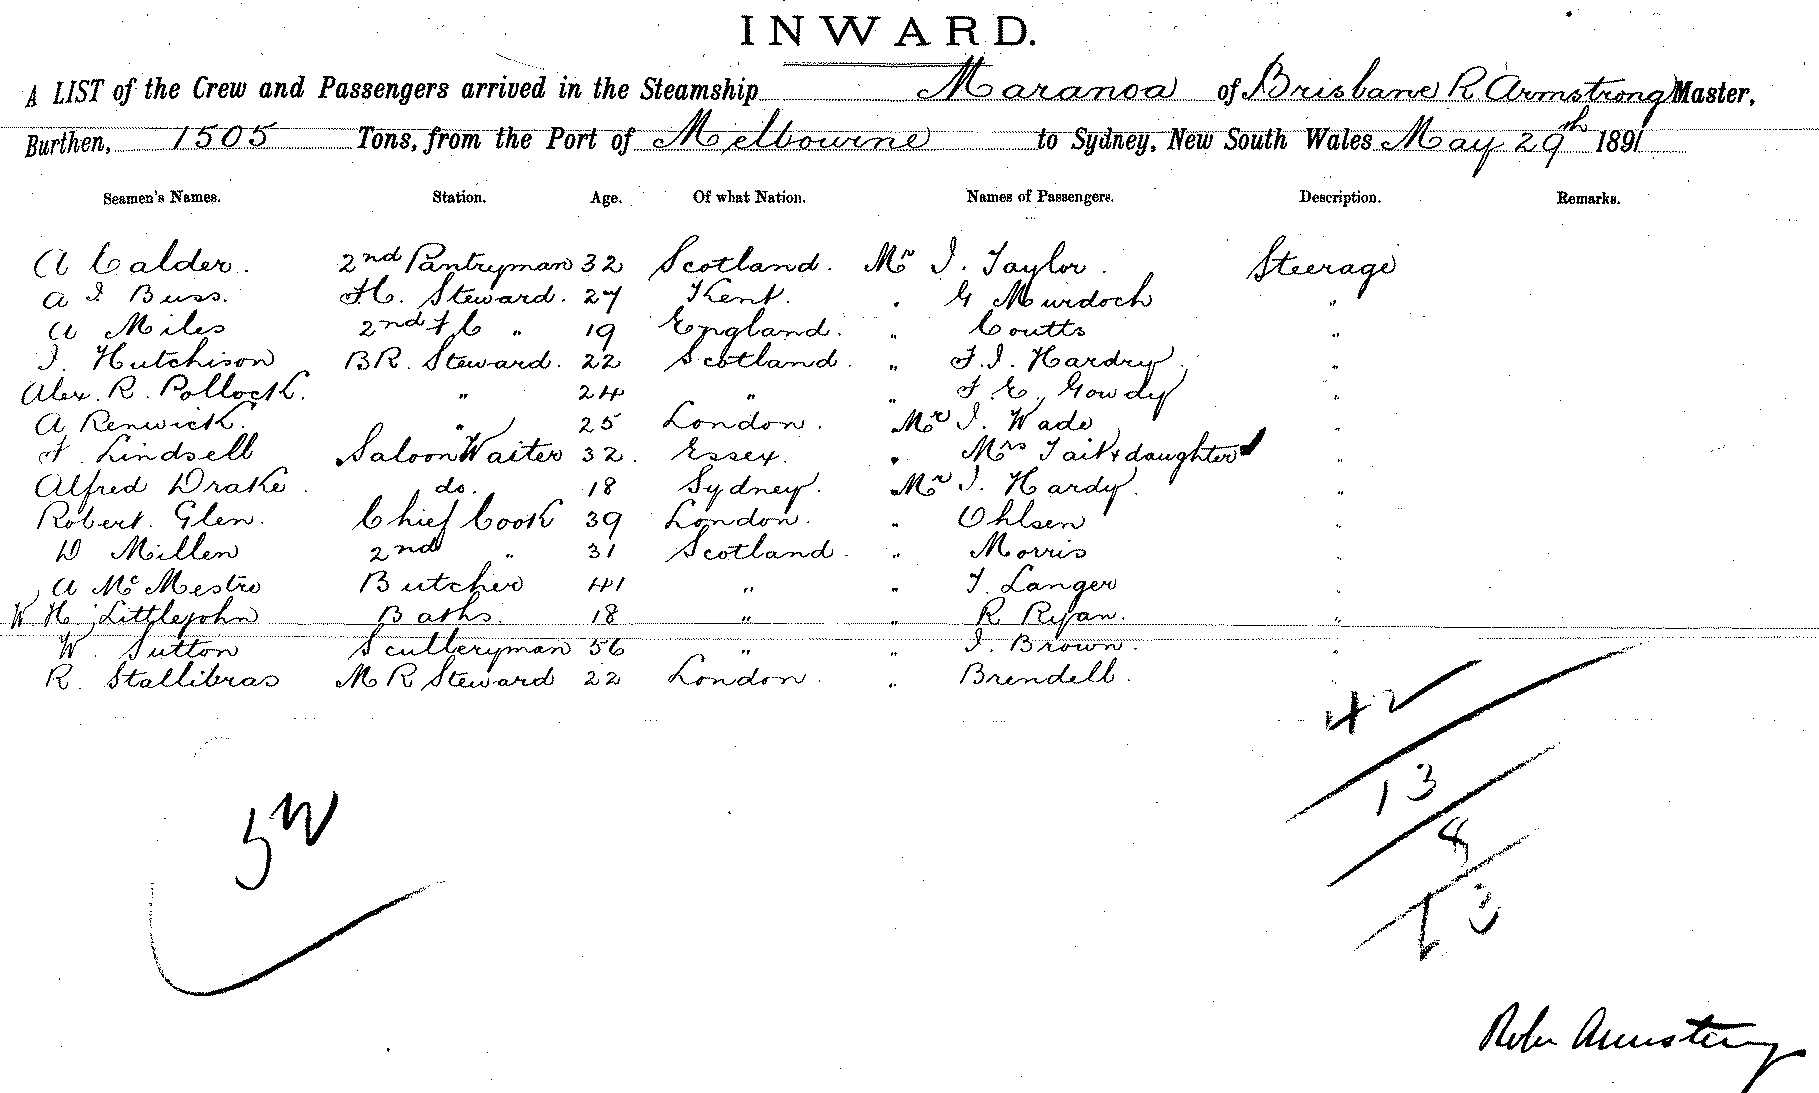 INWARD.
A LIST of the Crew and Passengers arrived in the Steamship Maranoa of Brisbane R Armstrong Master,
Burthen, 1505 Tons, from the Port of Melbourne to Sydney, New South Wales May 29th 1891
Seamen's Names. Station. Age. Of what Nation. Names of Passengers. Description. Remarks.
A Calder. 2nd Pantryman 32 Scotland. Mr J. Taylor. Steerage
A J Buss. F.C. Steward. 27 Kent. " G Murdoch "
A Miles 2nd F C " 19 England. " Coutts "
J. Hutchison BR. Steward. 22 Scotland. " F. J. Hardry "
Alex. R. Pollock. " 24 " " F E. Gowdy "
A Renwick. " 25 London. Mr J. Wade "
F. Lindsell Saloon Waiter 32. Essex. " Mrs Tait & daughter "
Alfred Drake. do. 18 Sydney. Mr J. Hardy. "
Robert. Glen. Chief Cook 39 London. " Ohlsen "
D Millen 2nd " 31 Scotland. " Morris "
A McMestre Butcher 41 " " T. Langer "
W H Littlejohn Baths. 18 " " R Ryan. "
W. Sutton Sculleryman 56 " " J. Brown. "
R. Stallibras M R Steward 22 London. " Brendell. "
42
13
8
52
63
Armstrong